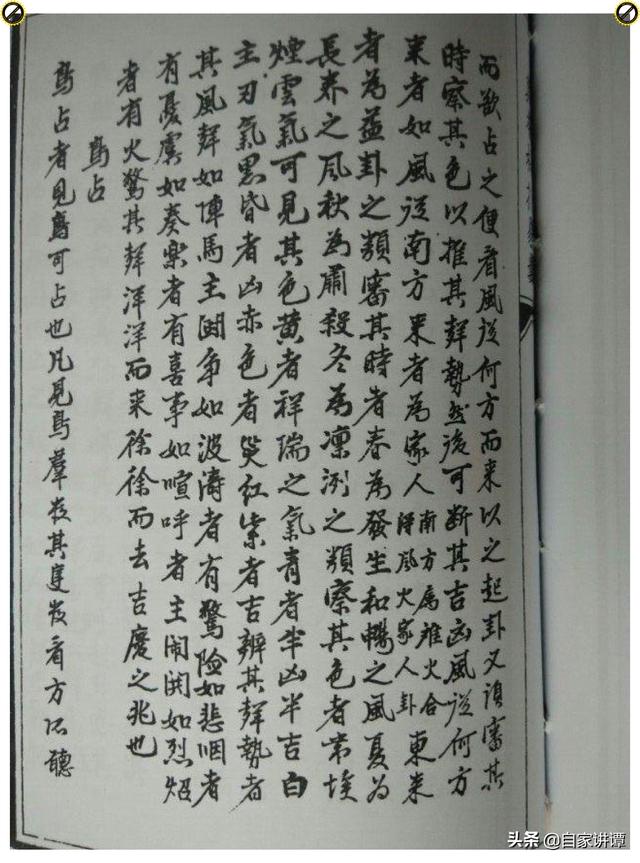 而欲占之便看風從何方而來以之起卦又須審其
時察其色以推其聲勢然後可斷其吉凶風從何方
來者如風從南方來者為家人南方屬離火合得風火家人卦東來
者為益卦之類審其時者春為發生和暢之風夏為
長养之风秋為肅殺冬為凜冽之類察其色者帶埃
煙雲氣可見其色黃者祥瑞之氣青者半凶半吉白
主刃氣黑昏者凶赤色者災紅紫者吉辨其聲勢者
其風聲如陣馬主鬪争如波濤者有驚險如悲咽者
有憂虞如奏樂者有喜事如喧呼者主闹鬨如烈焰
者有火驚其聲洋洋而來徐徐而去吉慶之兆也
鸟占
鸟占者見鳥可占也凡見鸟羣数其隻数看方所聽
头条 @自家讲谭